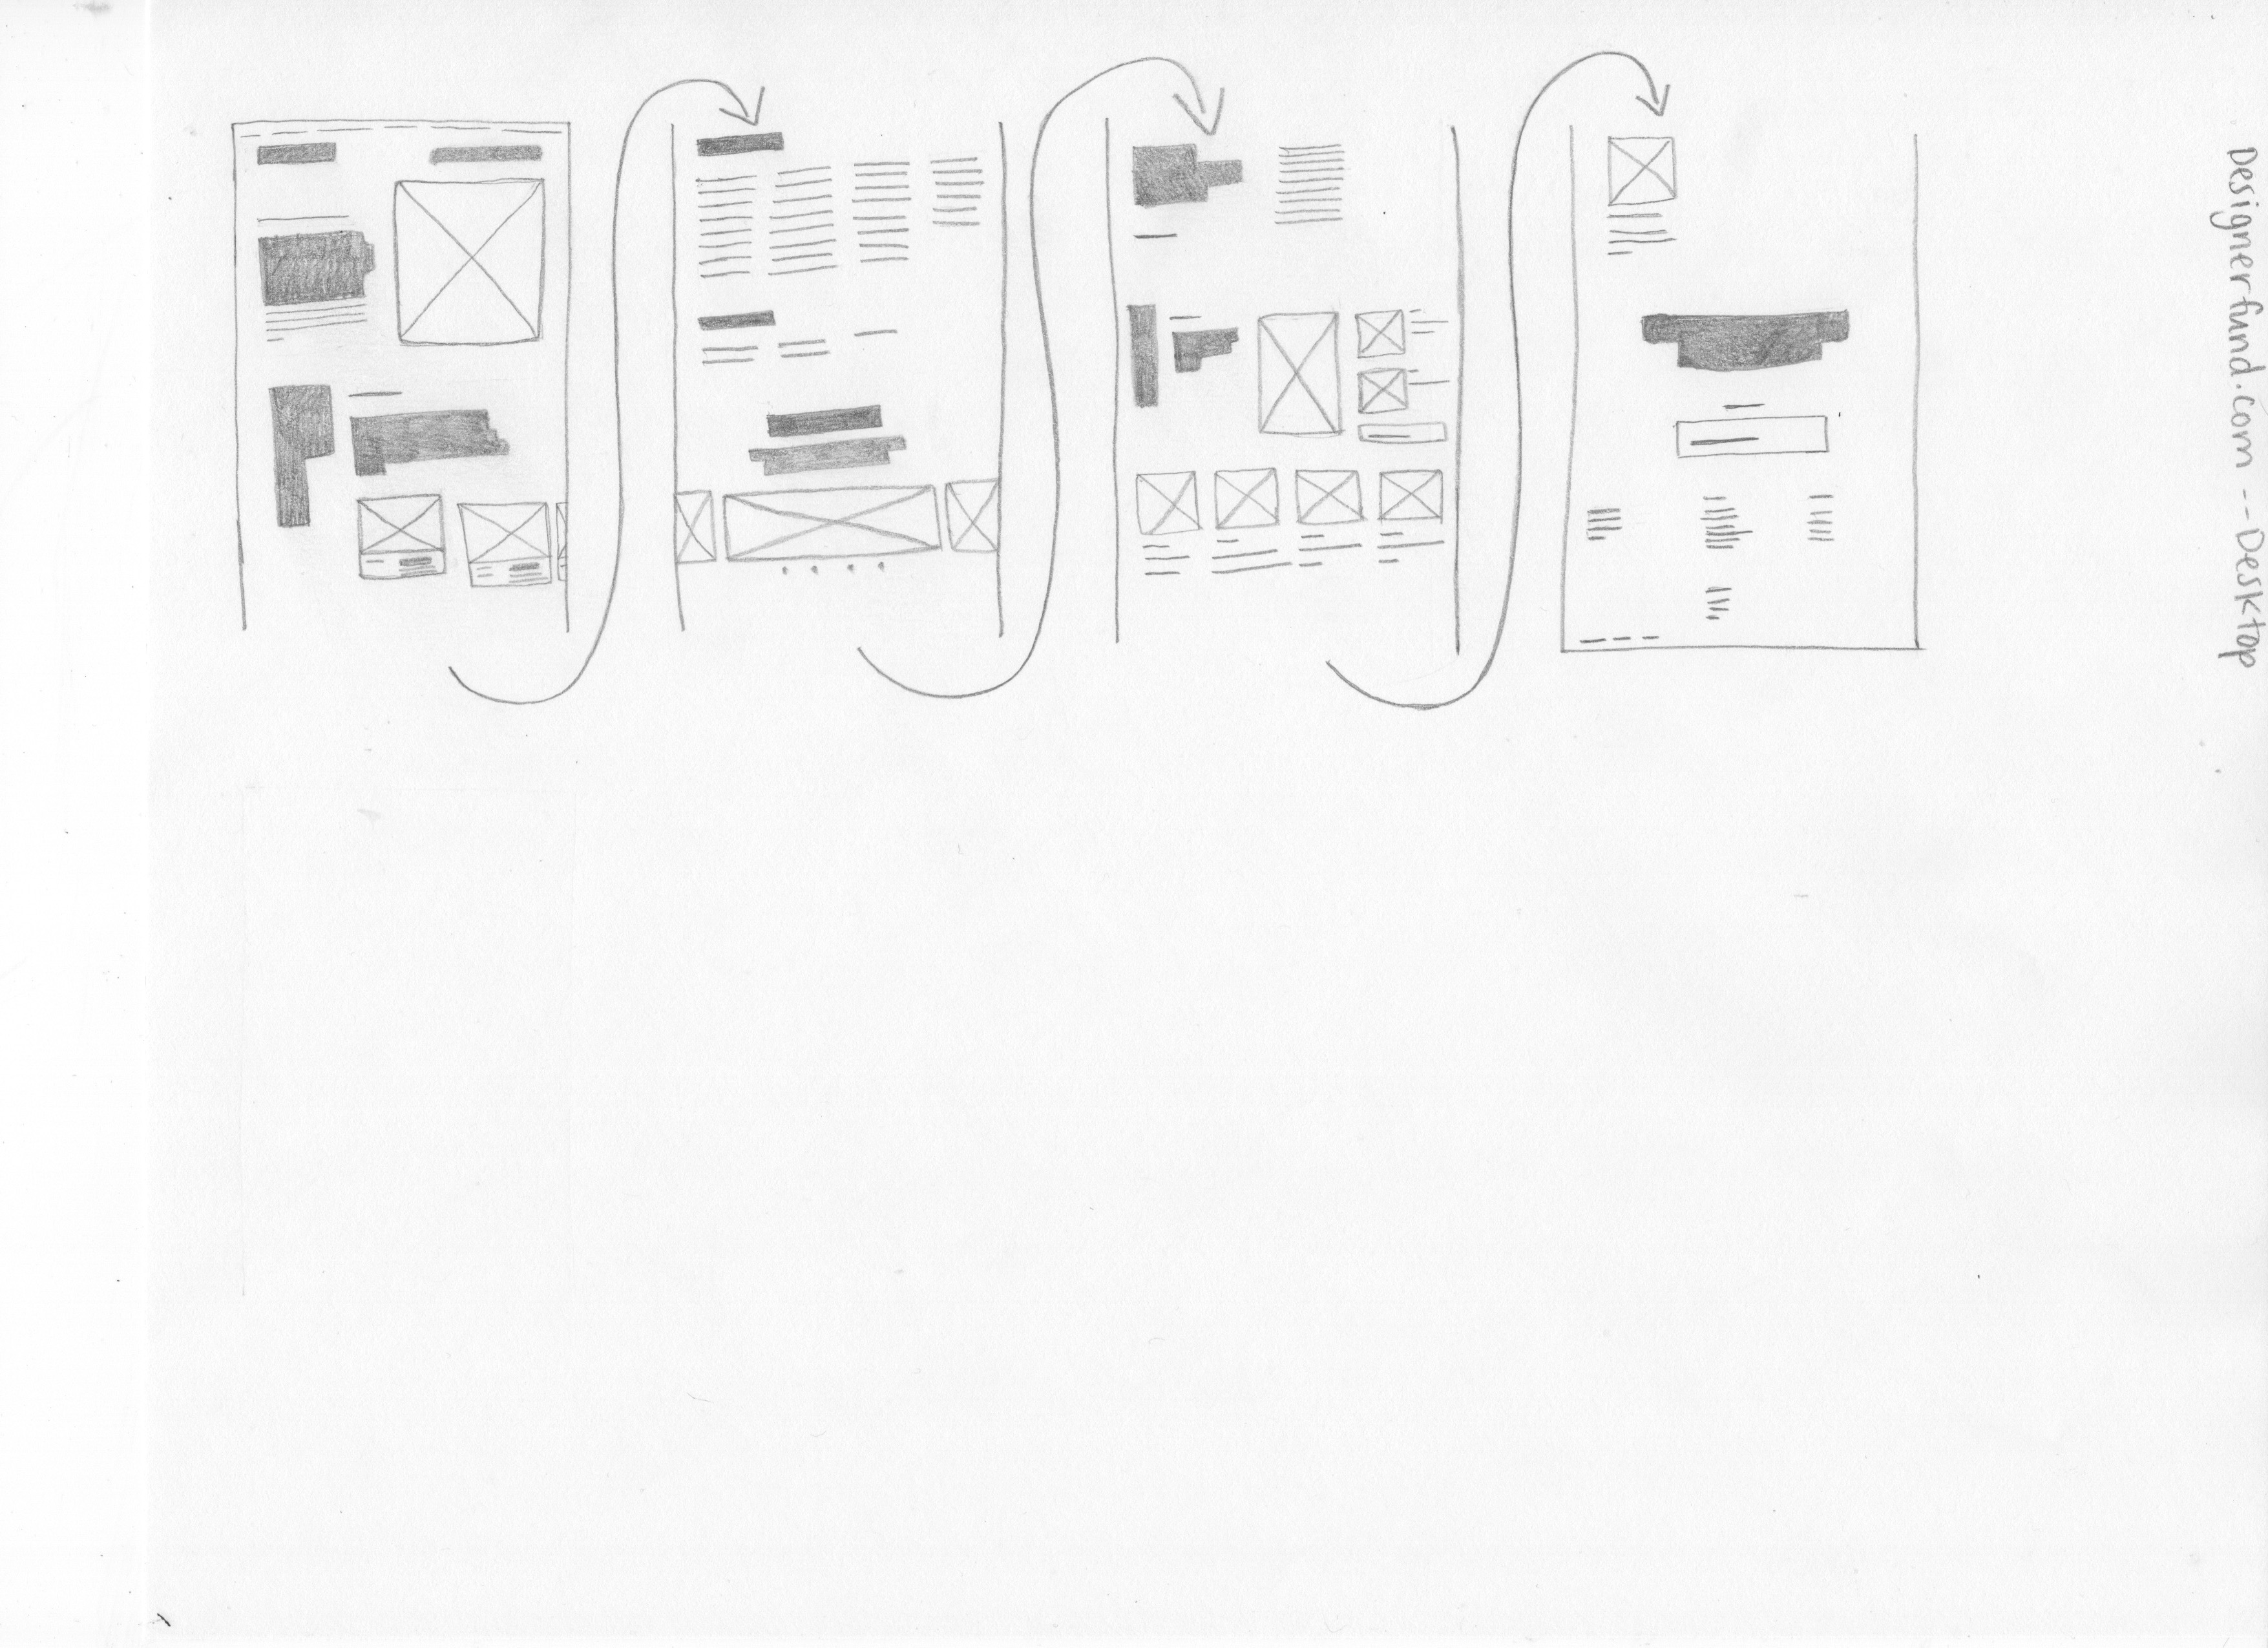 Designerfund.com -- Desktop